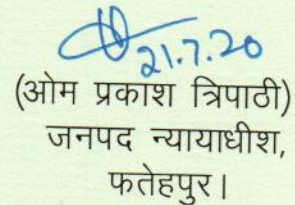 21.7.20
(ओम प्रकाश त्रिपाठी)
जनपद न्यायाधीश,
फतेहपुर।